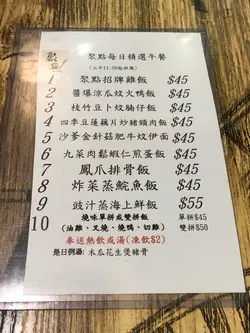 聚點
聚點每日精選午餐
(上午11:30起供應)
1 聚點招牌雞飯 $45
2 醬爆涼瓜炆火鴨飯 $45
3 枝竹豆卜炆腩仔飯 $45
4 四季豆蓮藕片炒豬頸肉飯 $45
5 沙爹金針菇肥牛炆伊面 $45
6 九菜肉鬆蝦仁煎蛋飯 $45
7 鳳爪排骨飯 $45
8 炸菜蒸鯇魚飯 $45
9 豉汁蒸海上鮮飯 $55
10 燒味單拼或雙拼飯 單拼$45
(油雞、叉燒、燒鴨、切雞) 雙拼$50
奉送熱飲或湯(凍飲$2)
是日例湯: 木瓜花生煲豬骨